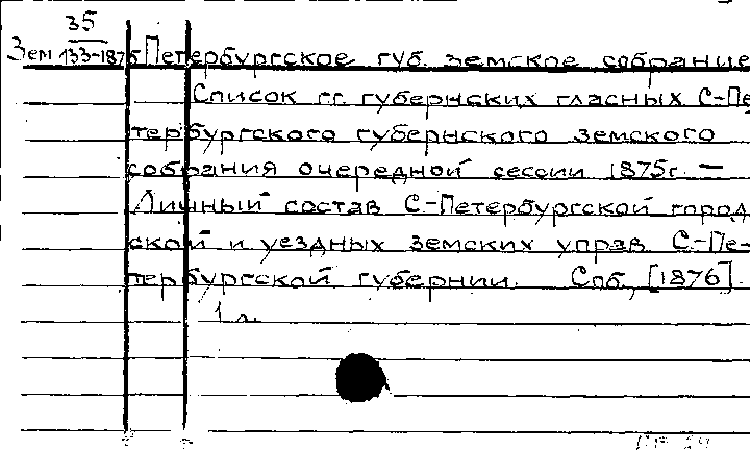 35
Зем 133-1875 Петербургское губ. земское собрание
Список гг. губернских гласных С-Пе
тербургского губернского земского
собрания очередной сессии 1875г. —
Личный состав С-Петербургской город
ской и уездных земских управ С-Пе-
тербургской губернии. Спб, [1876].
1 л.